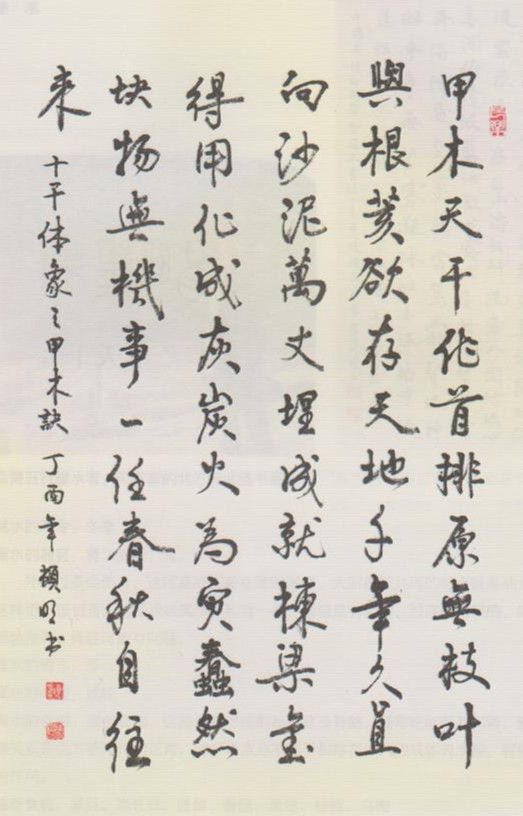 甲木天干作首排原無枝叶
與根荄欲存天地千年久直
向沙泥萬丈埋成就棟梁金
得用化成灰炭火為灾蠢然
块物無機事一任春秋自往
来
十干体象之甲木訣 丁酉年书